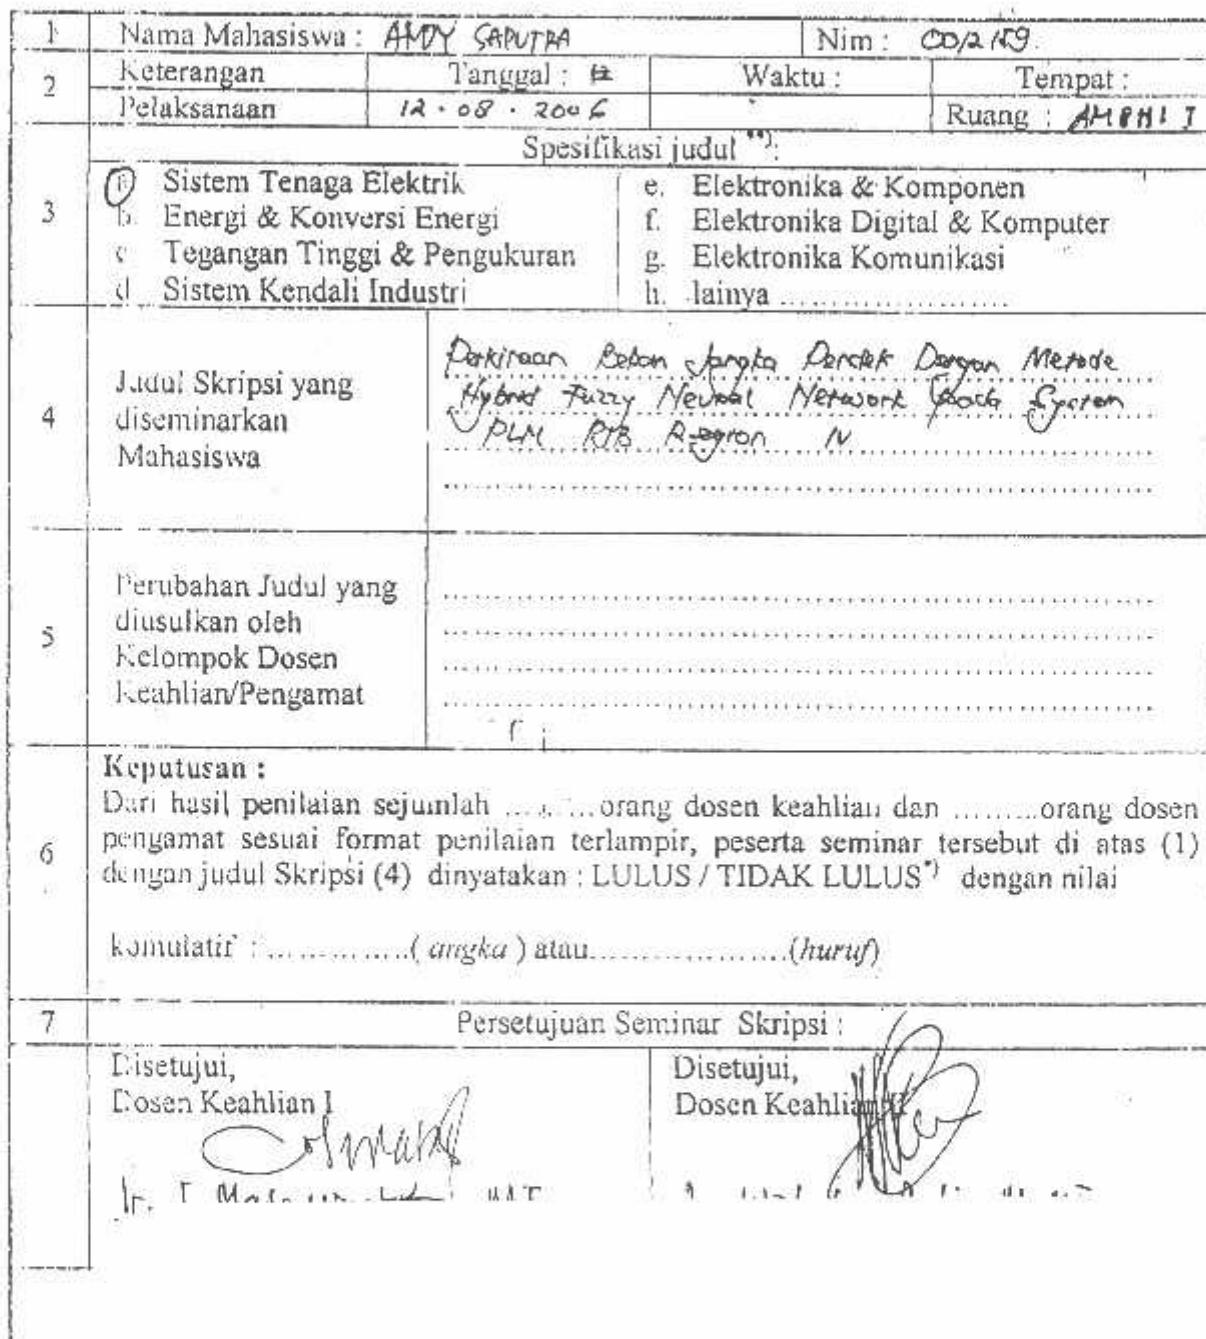 1 Nama Mahasiswa : ANDY SAPUTRA Nim : 0012159
2 Keterangan Pelaksanaan Tanggal : Waktu : Tempat :
12 . 08 . 2006 Ruang : AMPHI I
3 Spesifikasi judul **):
a. Sistem Tenaga Elektrik e. Elektronika & Komponen
b. Energi & Konversi Energi f. Elektronika Digital & Komputer
c. Tegangan Tinggi & Pengukuran g. Elektronika Komunikasi
d. Sistem Kendali Industri h. lainya ......................
4 Judul Skripsi yang
diseminarkan
Mahasiswa
Perkiraan Beban Jangka Pendek Dengan Metode
Hybrid Fuzzy Neural Network pada System
PLN RJB Region IV
5 Perubahan Judul yang
diusulkan oleh
Kelompok Dosen
Keahlian/Pengamat
6 Keputusan :
Dari hasil penilaian sejumlah .........orang dosen keahlian dan .........orang dosen
pengamat sesuai format penilaian terlampir, peserta seminar tersebut di atas (1)
dengan judul Skripsi (4) dinyatakan : LULUS / TIDAK LULUS*) dengan nilai
komulatif : ...............( angka ) atau.....................(huruf)
7 Persetujuan Seminar Skripsi :
Disetujui,
Dosen Keahlian I
Disetujui,
Dosen Keahlian II
Ir.